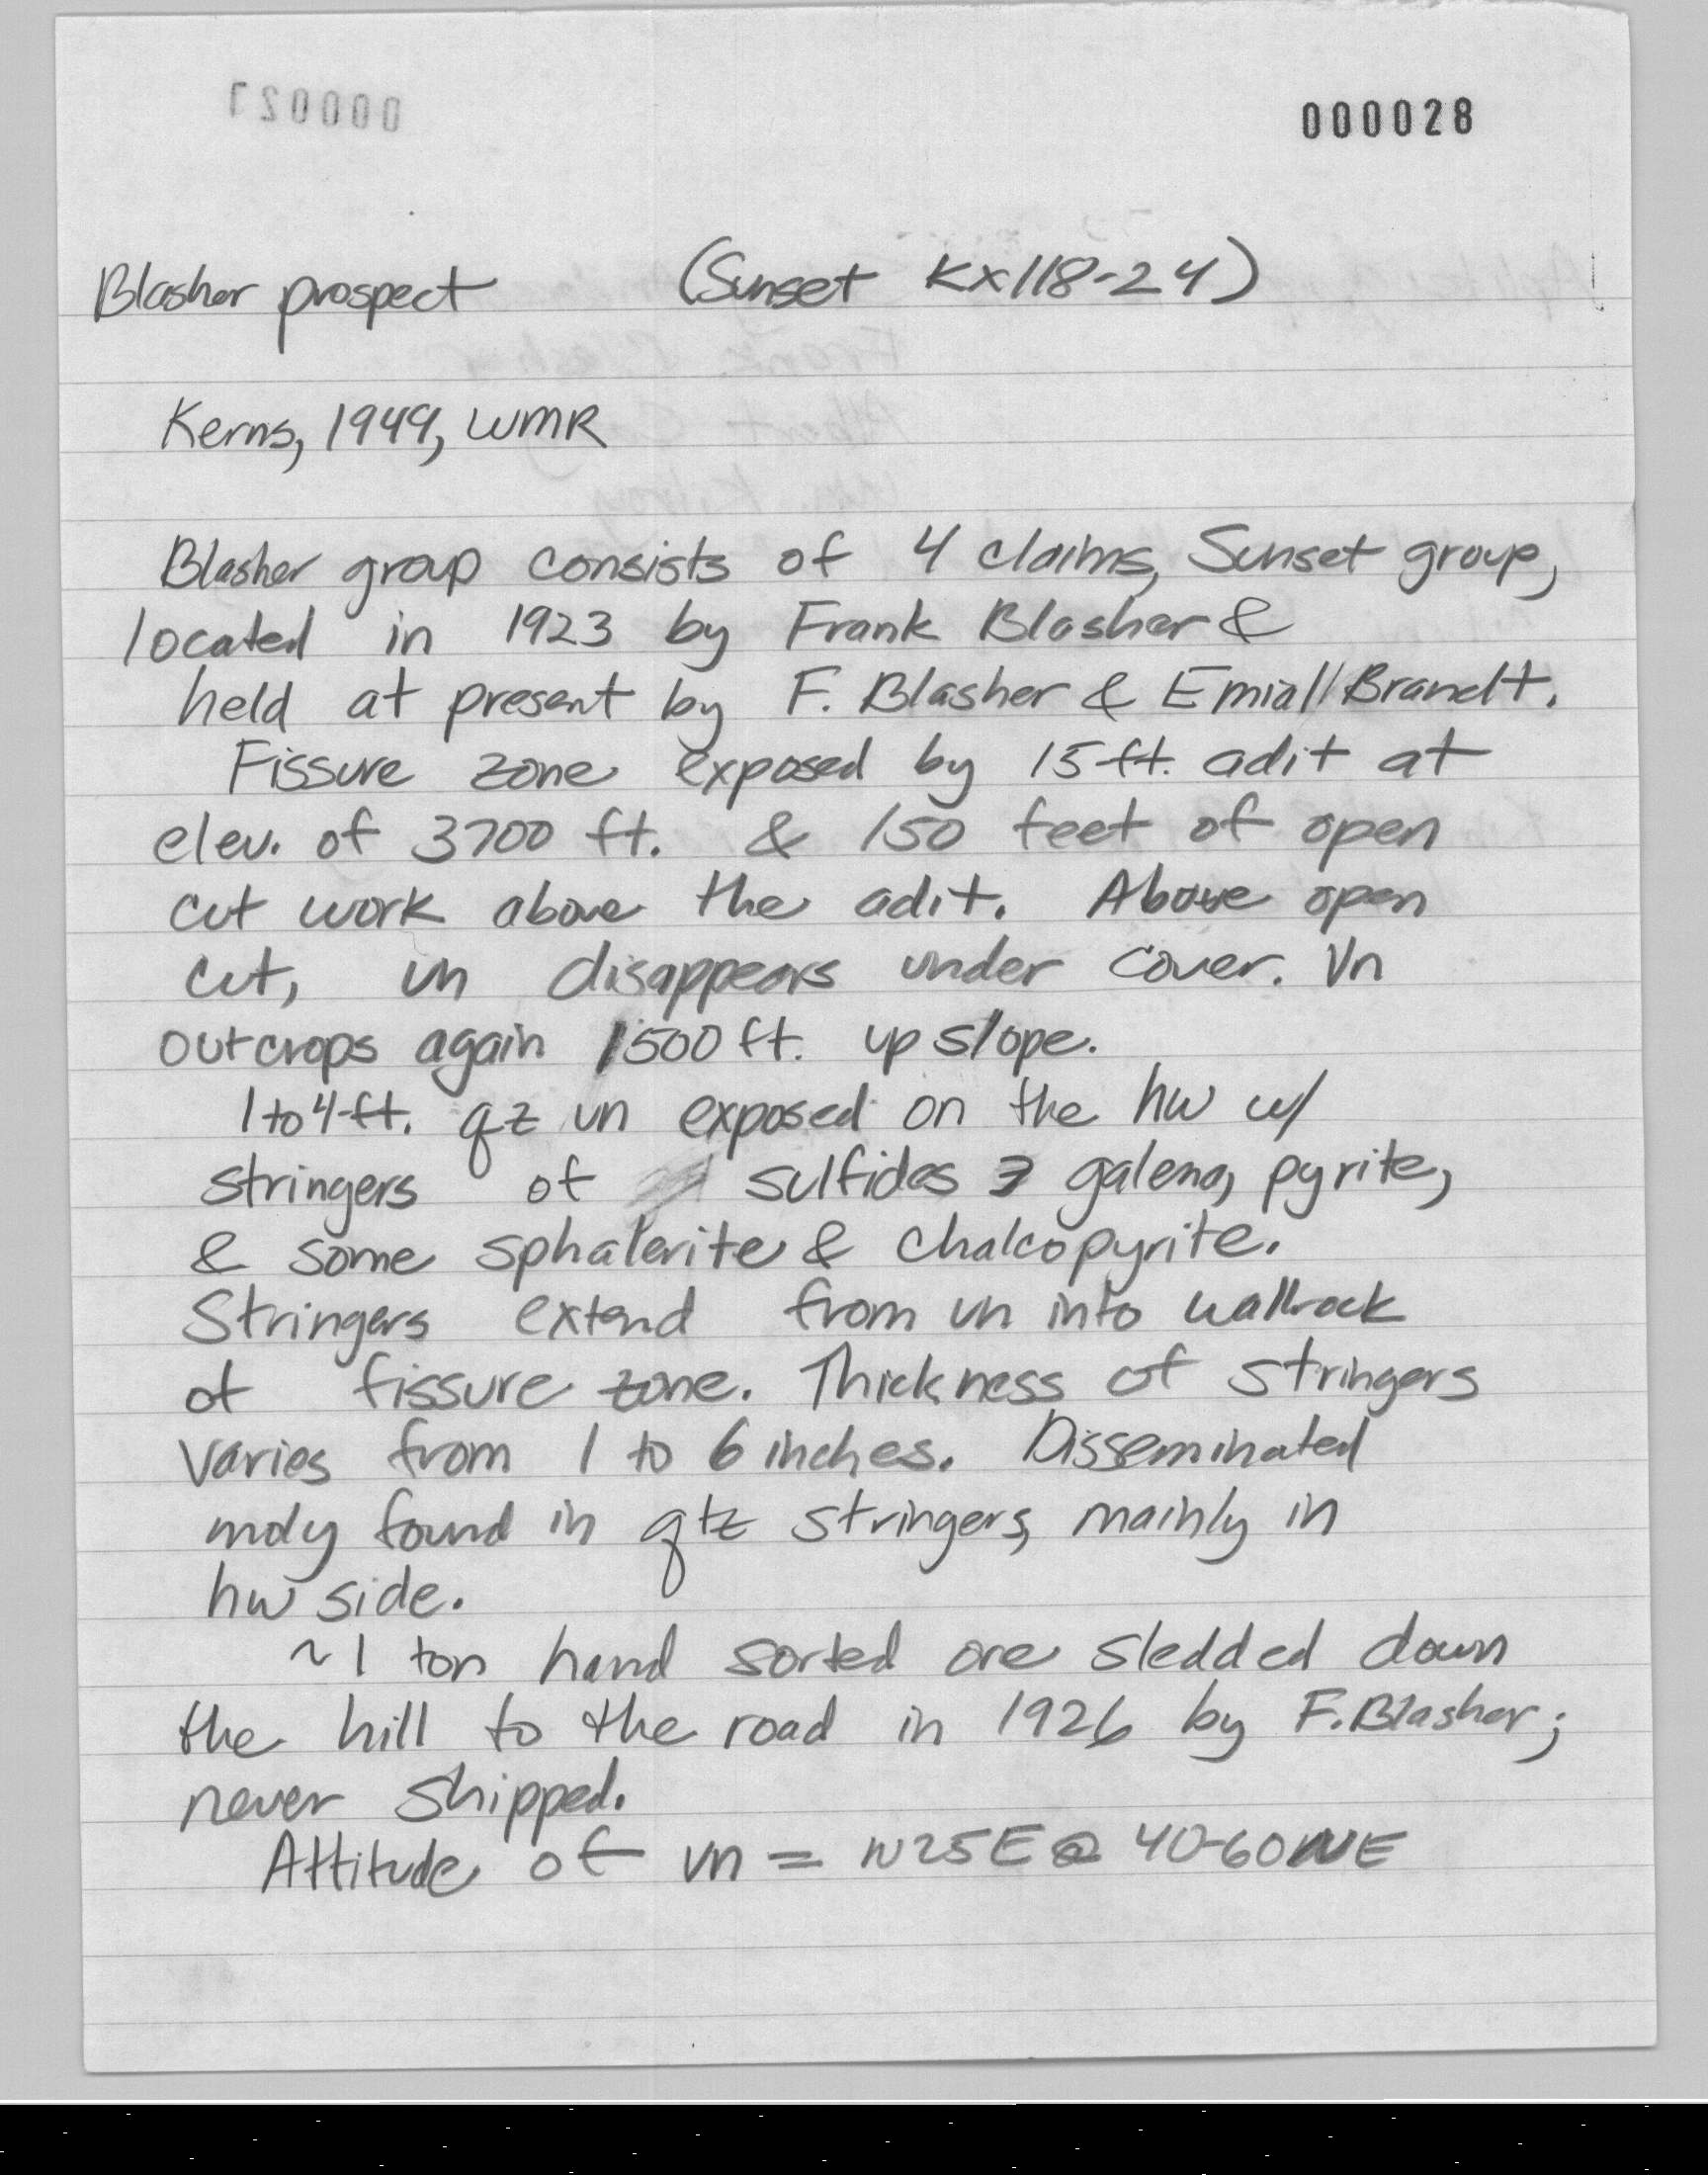 000028
Blasher prospect (Sunset Kx118-24)
Kerns, 1949, WMR
Blasher group consists of 4 claims, Sunset group,
located in 1923 by Frank Blasher &
held at present by F. Blasher & Emiall Brandt.
Fissure zone exposed by 15 ft. adit at
elev. of 3700 ft. & 150 feet of open
cut work above the adit. Above open
cut, vn disappears under cover. Vn
outcrops again 1500 ft. up slope.
1 to 4 ft. qz vn exposed on the hw w/
stringers of sulfides galena, pyrite,
& some sphalerite & chalcopyrite.
Stringers extend from vn into wallrock
of fissure zone. Thickness of stringers
varies from 1 to 6 inches. Disseminated
mdy found in qtz stringers, mainly in
hw side.
~ 1 ton hand sorted ore sledded down
the hill to the road in 1926 by F. Blasher;
never shipped.
Attitude of vn = N25E @ 40-60 NE